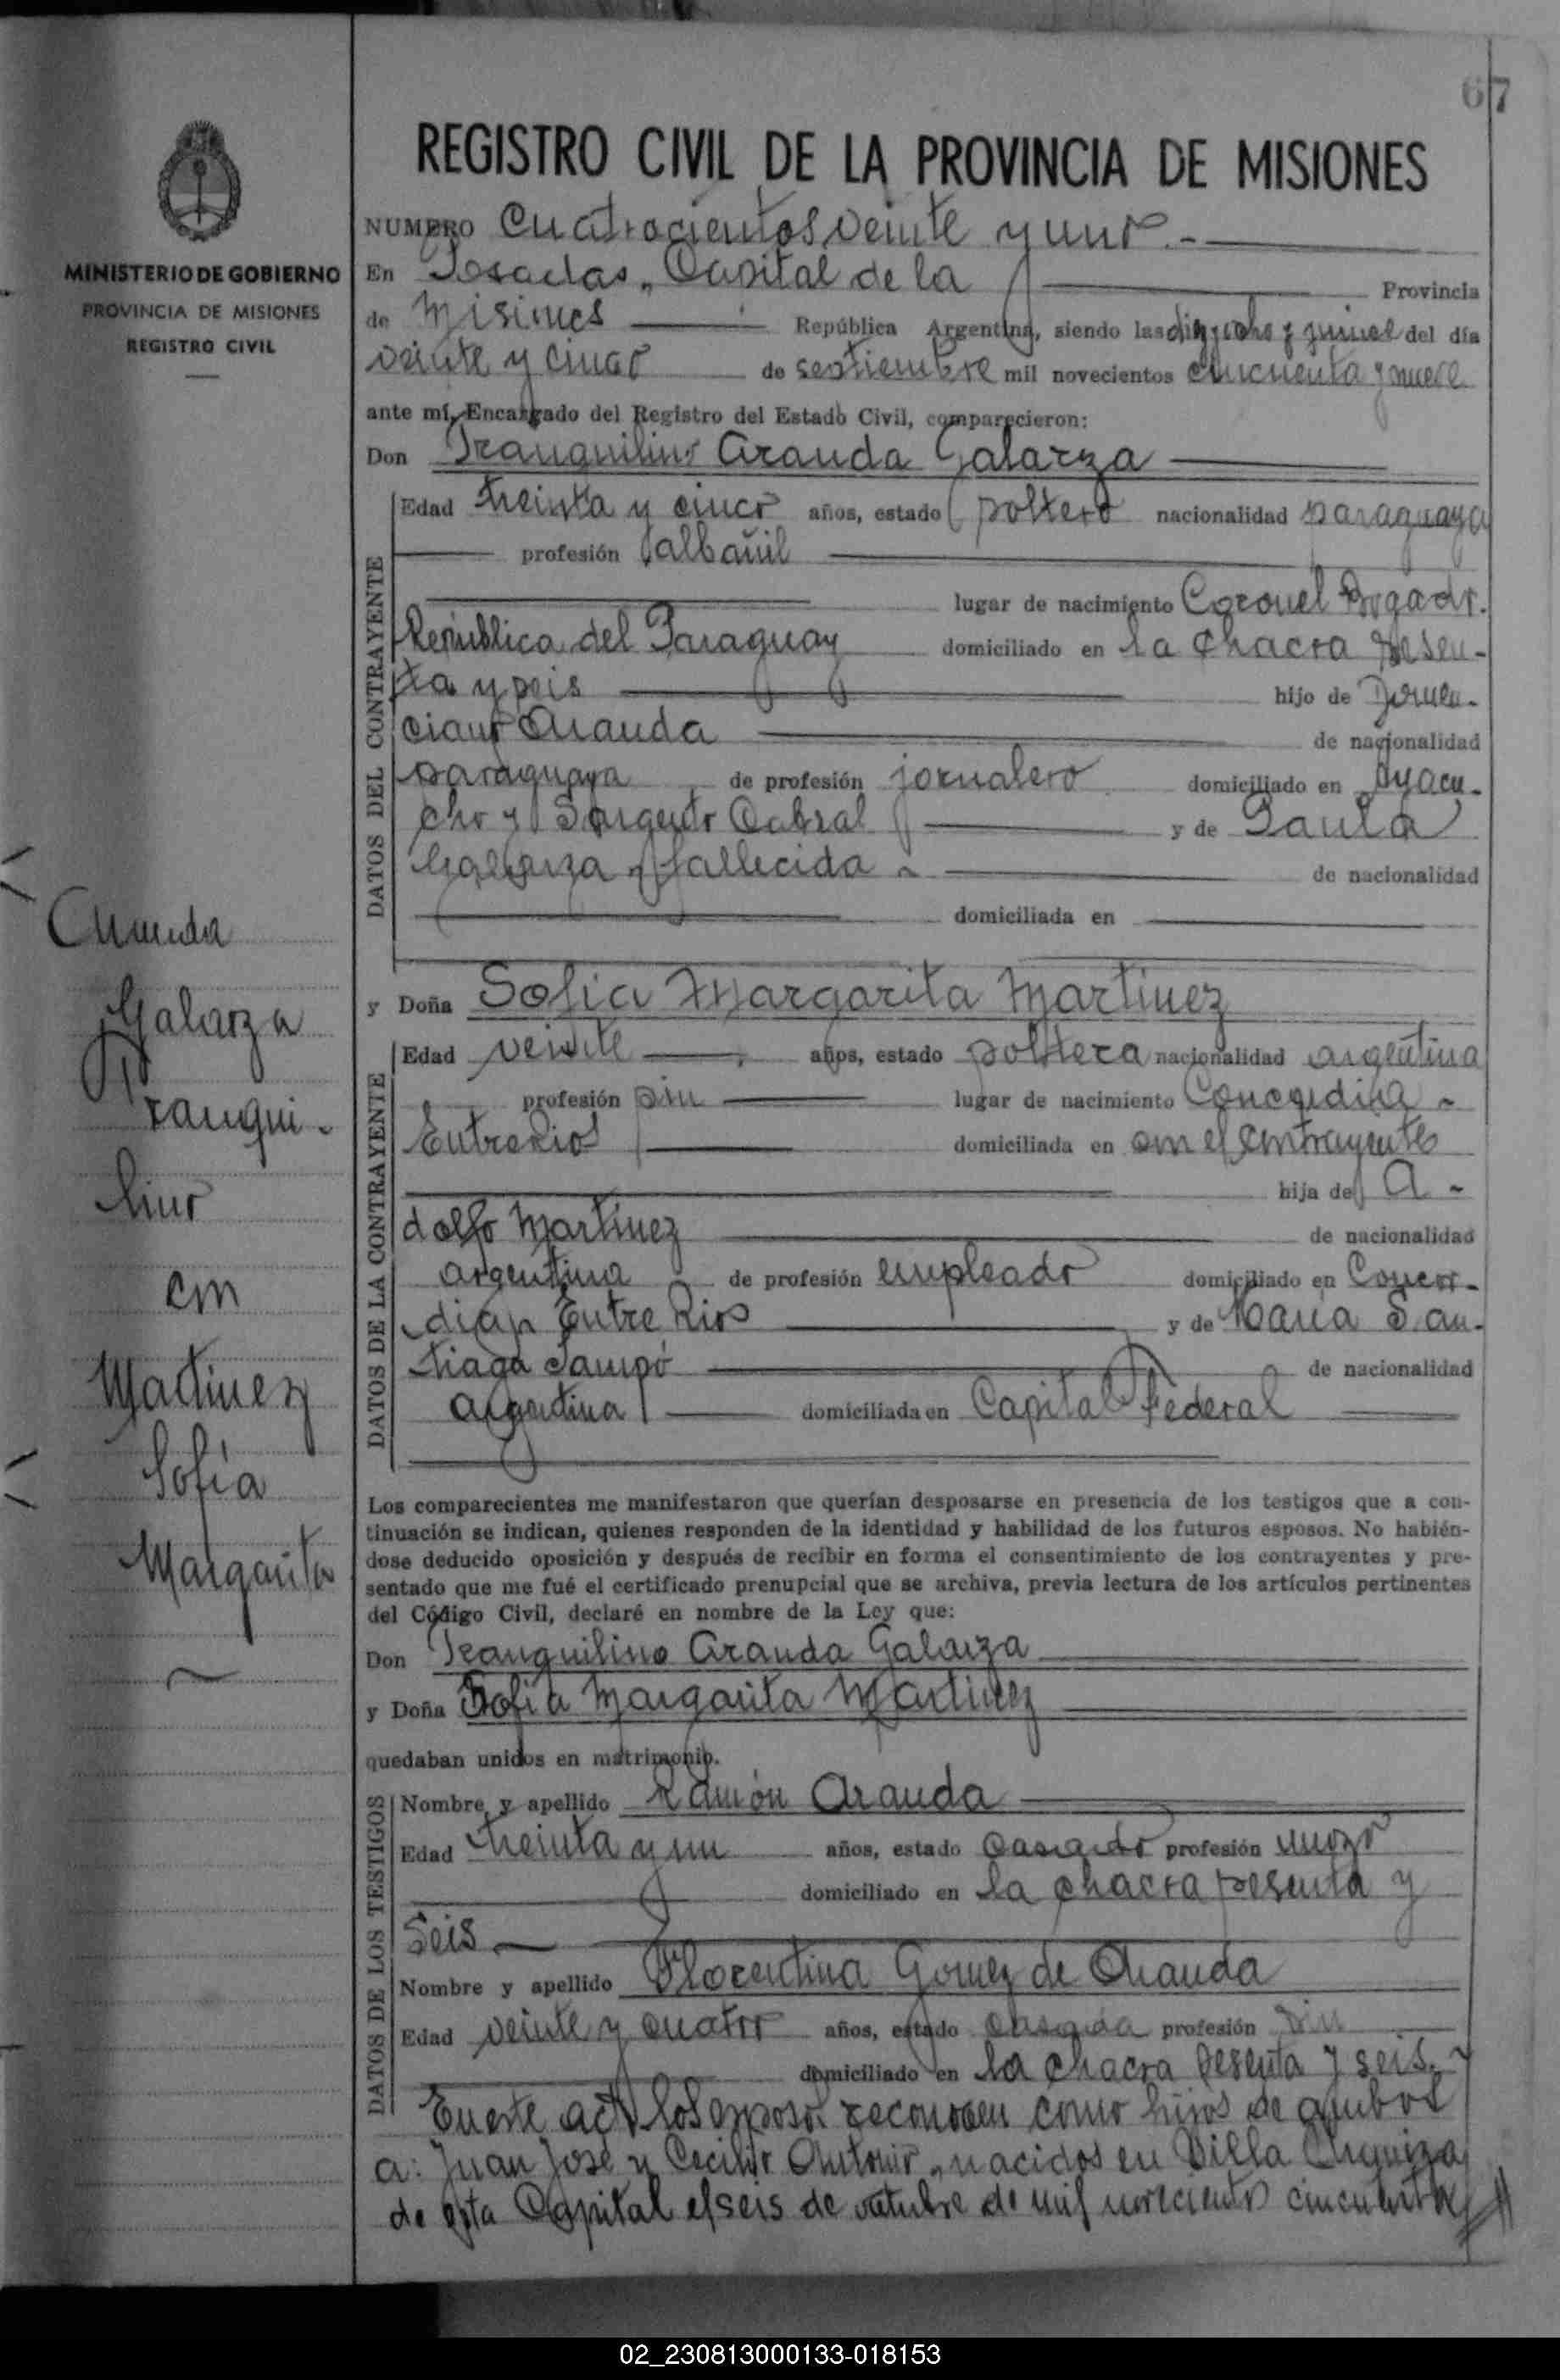 67
REGISTRO CIVIL DE LA PROVINCIA DE MISIONES
MINISTERIO DE GOBIERNO
PROVINCIA DE MISIONES
REGISTRO CIVIL
Aranda
Galarza
Tranqui-
lino
con
Martinez
Sofía
Margarita
NUMERO Cuatrocientos veinte y uno.-
En Posadas, Capital de la Provincia
de Misiones República Argentina, siendo las diez y ocho y quince del día
veinte y cinco de septiembre mil novecientos cincuenta y nueve
ante mí, Encargado del Registro del Estado Civil, comparecieron:
Don Tranquilino Aranda Galarza
DATOS DEL CONTRAYENTE
Edad treinta y cinco años, estado soltero nacionalidad paraguaya
profesión albañil
lugar de nacimiento Coronel Bogado.
República del Paraguay domiciliado en la chacra sesen-
ta y seis hijo de
ciano Aranda de nacionalidad
paraguaya de profesión jornalero domiciliado en Ayacu-
cho y Sargento Cabral y de Paula
Galarza, fallecida - de nacionalidad
domiciliada en
y Doña Sofia Margarita Martinez
DATOS DE LA CONTRAYENTE
Edad veinte años, estado soltera nacionalidad argentina
profesión sin lugar de nacimiento Concordia -
Entre Rios domiciliada en con el contrayente
hija de A-
dolfo Martinez de nacionalidad
argentina de profesión empleado domiciliado en Concor-
dia, Entre Rios y de María San-
tiaga Sampó de nacionalidad
argentina domiciliada en Capital Federal
Los comparecientes me manifestaron que querían desposarse en presencia de los testigos que a con-
tinuación se indican, quienes responden de la identidad y habilidad de los futuros esposos. No habién-
dose deducido oposición y después de recibir en forma el consentimiento de los contrayentes y pre-
sentado que me fué el certificado prenupcial que se archiva, previa lectura de los artículos pertinentes
del Código Civil, declaré en nombre de la Ley que:
Don Tranquilino Aranda Galarza
y Doña Sofia Margarita Martinez
quedaban unidos en matrimonio.
DATOS DE LOS TESTIGOS
Nombre y apellido Ramón Aranda
Edad treinta y un años, estado casado profesión mozo
domiciliado en la chacra sesenta y
seis
Nombre y apellido Florentina Gomez de Aranda
Edad veinte y cuatro años, estado casada profesión sin
domiciliado en la chacra sesenta y seis.-
En este acto los esposos reconocen como hijos de ambos
a: Juan José y Cecilio Antonio, nacidos en Villa Urquiza
de esta Capital el seis de octubre de mil novecientos cincuenta y
02_230813000133-018153